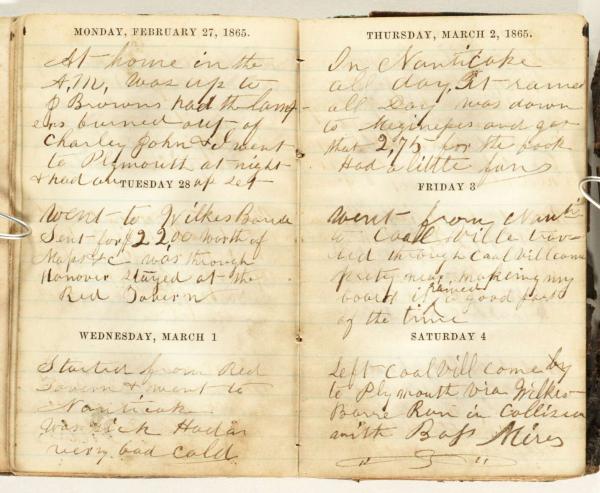 MONDAY, FEBRUARY 27, 1865.
At home in the
A,M, was up to
J Browns had the lamp-
ens burned out of
Charley John & I went
to Plymouth at night
& had an up set
TUESDAY 28
Went to Wilkes Barre
Sent for $22.00 worth of
Maps &c was through
Hanover Stayed at the
Red Tavern
WEDNESDAY, MARCH 1
Started from Red
Tavern & went to
Nanticoke
Was sick Had a
very bad cold
THURSDAY, MARCH 2, 1865.
In Nanticoke
all day, It rained
all Day was down
to and got
that 2,75 for the book
Had a little fun
FRIDAY 3
Went from Nanti
to Coallsville trav-
eled through Coal Vill
prety near making my
board it rained a good part
of the time
SATURDAY 4
Left Coal Vill come by
to Plymouth via Wilkes
Barre Run in Collision
with Boss Mires